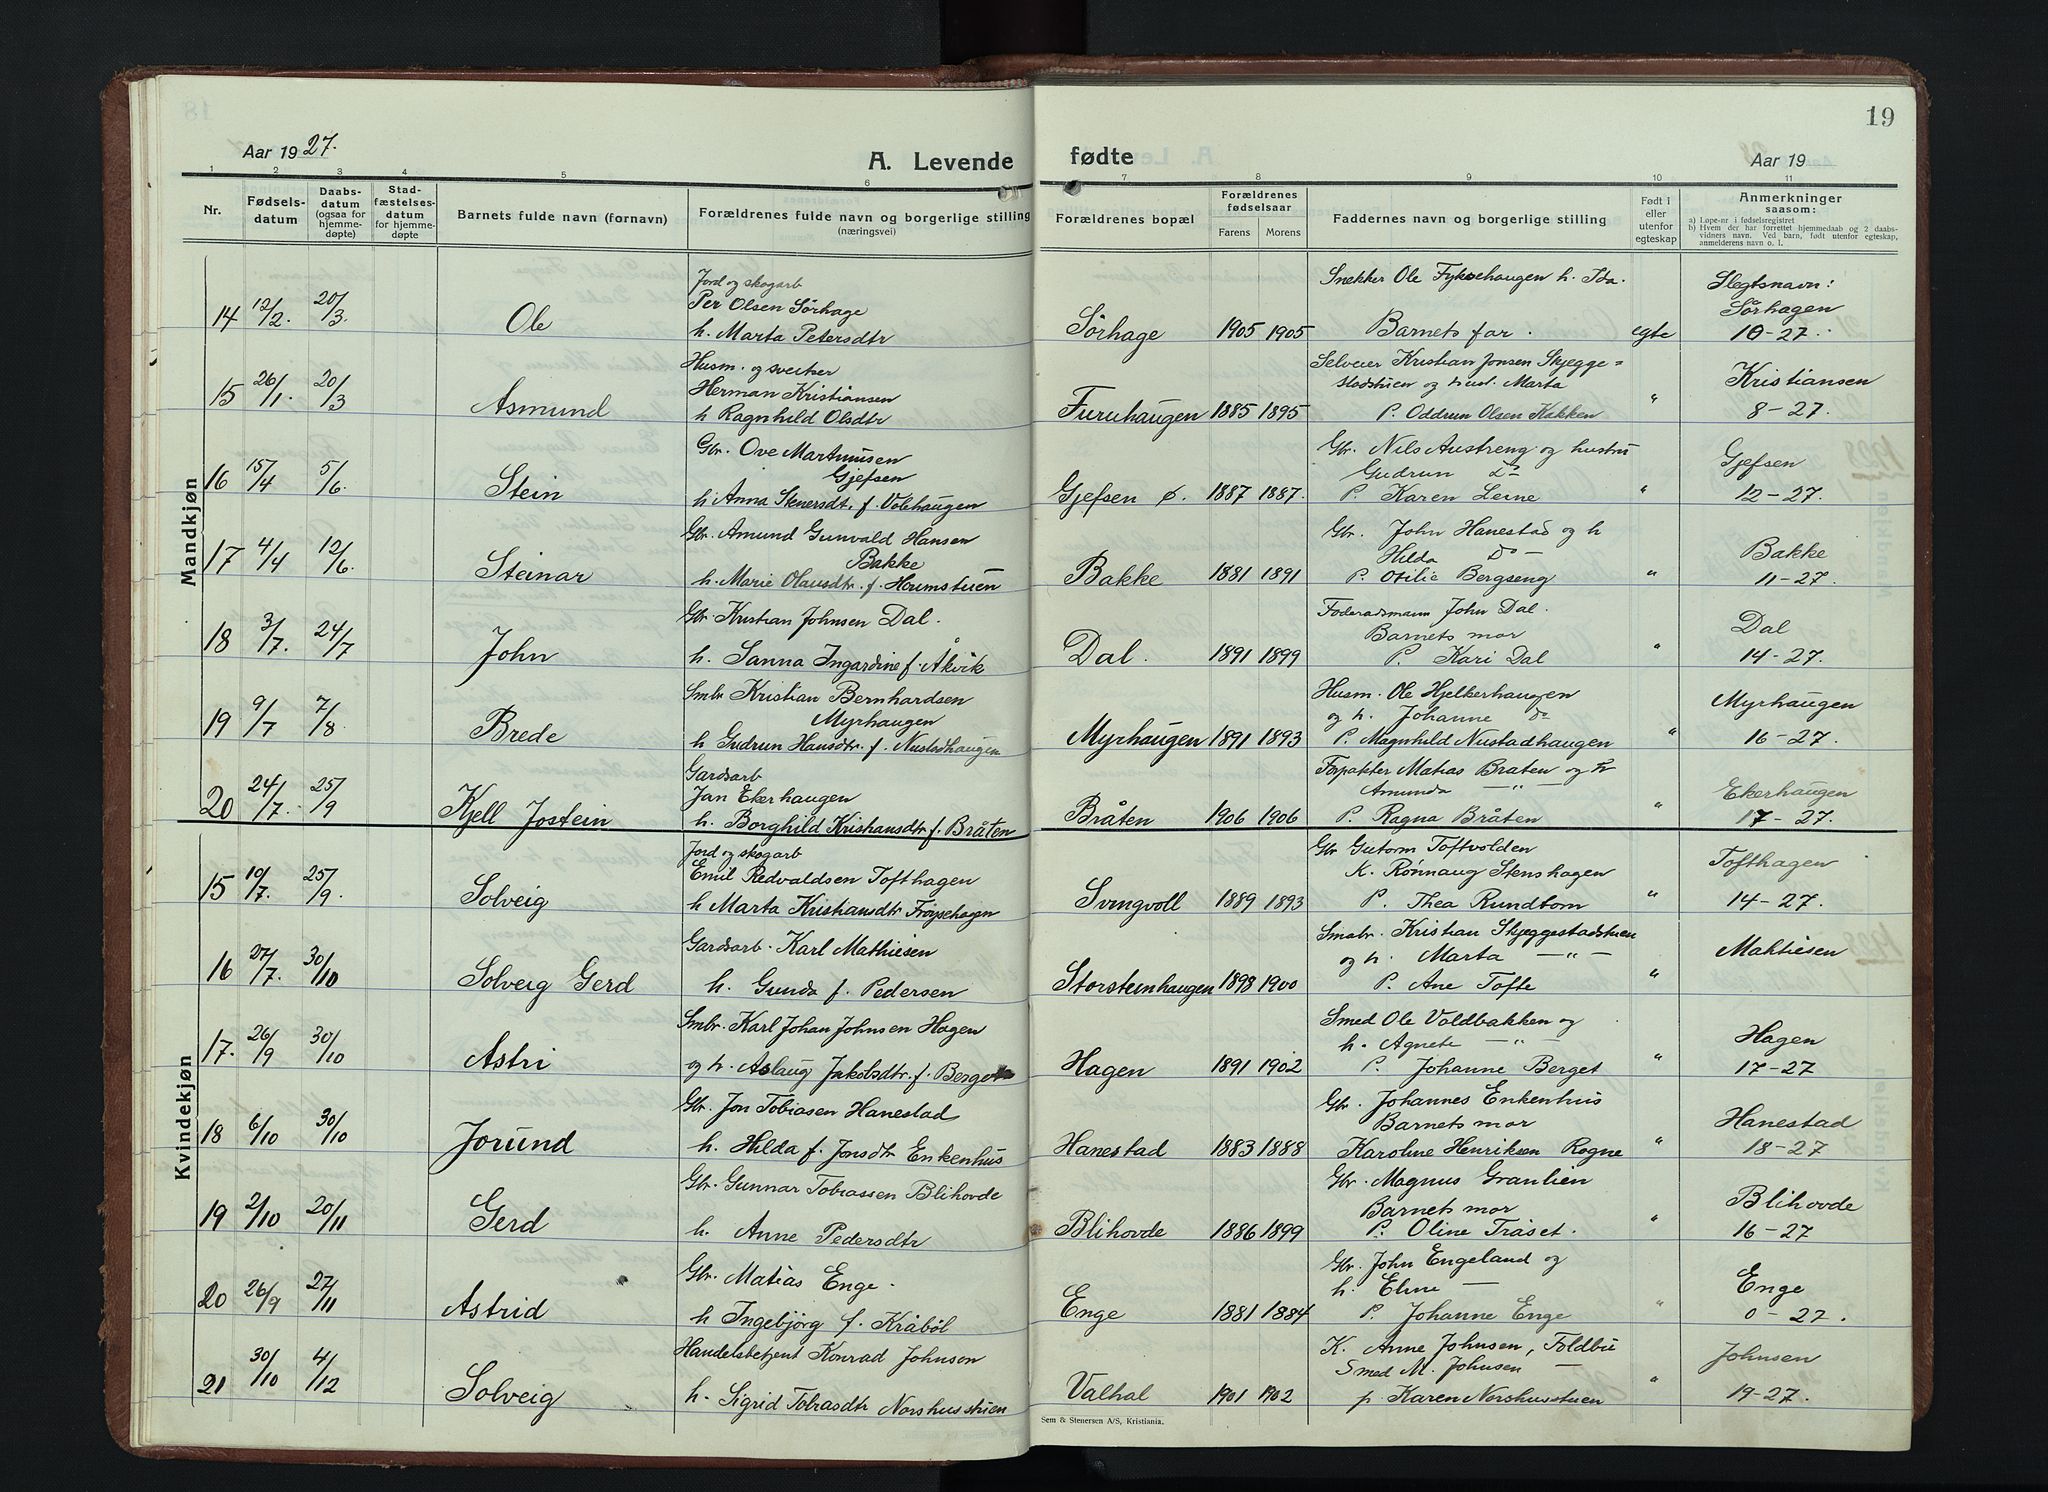 Aar 1927.
A. Levende
fødte
Aar 19
19
1 2 3 4 5 6 7 8 9 10 11
Nr.
Fødsels-
datum
Daabs-
datum
(ogsaa for
hjemme-
døpte)
Stad-
fæstelses-
datum
for hjemme-
døpte
Barnets fulde navn (fornavn)
Forældrenes fulde navn og borgerlige stilling
(næringsvei)
Forældrenes bopæl
Forældrenes
fødselsaar
Farens Morens
Faddernes navn og borgerlige stilling
Født i
eller
utenfor
egteskap
Anmerkninger
saasom:
a) Løpe-nr i fødselsregistret
b) Hvem der har forrettet hjemmedaab og 2 daabs-
vidners navn. Ved barn, født utenfor egteskap,
anmelderens navn o. l.
Mandkjøn
Jord og skogarb
Per Olsen Sörhage
14 12/2. 20/3. Ole
h. Marta Petersdtr
Sörhage 1905 1905
Snekker Ole Fyksehaugen h. Ida.
Barnets far. egte
Slegtsnavn:
Sörhagen
10-27.
Husm. og sveitser
15 26/1. 20/3 Asmund
Herman Kristiansen
h Ragnhild Olsdtr
Furuhaugen 1885 1895
Selveier Kristian Jonsen Skjegge=
stadstuen og hust. Marta
P. Oddrun Olsen Kakken "
Kristiansen
8-27.
16 15/4 5/6. Stein
Gbr. Ove Martinusen
Gjefsen
h. Anna Sknersdt. f. Volehaugen
Gjefsen ø. 1887 1887.
Gbr. Nils Austreng og hustru
Gudrun Do
P. Karen Leine "
Gjefsen
12-27.
17 4/4 12/6. Steinar
Gbr. Amund Gunvald Hansen
Bakke
h. Marie Olausdtr. f. Houmstuen
Bakke 1881 1891
Gbr. John Hanestad og h
Hilda Do -
P. Otilie Bergseng "
Bakke
11-27
18 3/7. 24/7 John
Gbr Kristian Johnsen Dal.
h. Sanna Ingardine f. Åkvik
Dal. 1891 1899
Föderadsmann John Dal.
Barnets mor
P. Kari Dal "
Dal
14-27.
19 9/7 7/8. Brede
Smbr Kristian Bernhardsen
Myrhaugen
h Gudrun Hansdtr. f. Nustadhaugen
Myrhaugen 1891 1893
Husm. Ole Hjelkerhaugen
og h. Johanne do
P. Magnhild Nustadhaugen "
Myrhaugen
16-27.
20 24/7. 25/9 Kjell Jostein
Gardsarb
Jan Ekerhaugen
h. Borghild Kristiansdtr f. Bråten
Bråten 1906 1906
Forpakter Matias Bråten og h
Amunda — " —
P. Ragna Bråten "
Ekerhaugen
17-27.
Kvindekjøn
15 10/7. 25/9. Solveig
Jord og skogarb
Emil Redvaldsen Tofthagen
h Marta Kristiansdtr Fröysehagen
Svingvoll 1889 1893
Gbr Gutorm Toftvolden
K. Rønnaug Stenshagen
P. Thea Rundtom "
Tofthagen
14-27.
16 27/7. 30/10 Solveig Gerd
Gardsarb. Karl Mathiesen
h. Gunda f. Pedersen
Storsteinhaugen 1898 1900
Smabr. Kristian Skjeggestadstuen
og h. Marta — " —
P. Ane Tofte "
Mahtiesen
17. 26/9 30/10 Astri
Smbr. Karl Johan Johnsen Hagen
og h. Aslaug Jakobsdtr. f. Berget
Hagen 1891 1902
Smed Ole Voldbakken og
h. Agnete — " —
P. Johanne Berget "
Hagen
17-27
18 6/10 30/10 Jorund
Gbr. Jon Tobiasen Hanestad
h. Hilda f. Jonsdtr Enkenhus
Hanestad 1883 1888
Gbr. Johannes Enkenhus
Barnets mor
Karoline Henriksen Rogne "
Hanestad
18-27
19 2/10 20/11 Gerd
Gbr. Gunnar Tobiassen Blihovde
h. Anne Pedersdtr
Blihovde 1886 1899
Gbr. Magnus Granlien
Barnets mor
P. Oline Tråset. "
Blihovde
16-27
20 26/9 27/11 Astrid
Gbr. Matias Enge.
h Ingebjörg f. Kråböl
Enge 1881 1884
Gbr. John Engeland og
h. Eline —
P. Johanne Enge "
Enge
0-27.
21 30/10 4/12 Solveig
Handelsbetjent Konrad Johnson
h. Sigrid Tobiasdtr Norshusstuen
Valhal 1901 1902
K. Anne Johnsen, Foldbu
Smed M. Johnsen —
p. Karen Norshusstuen "
Johnsen
19-27.
Sem & Stenersen A/S, Kristiania.